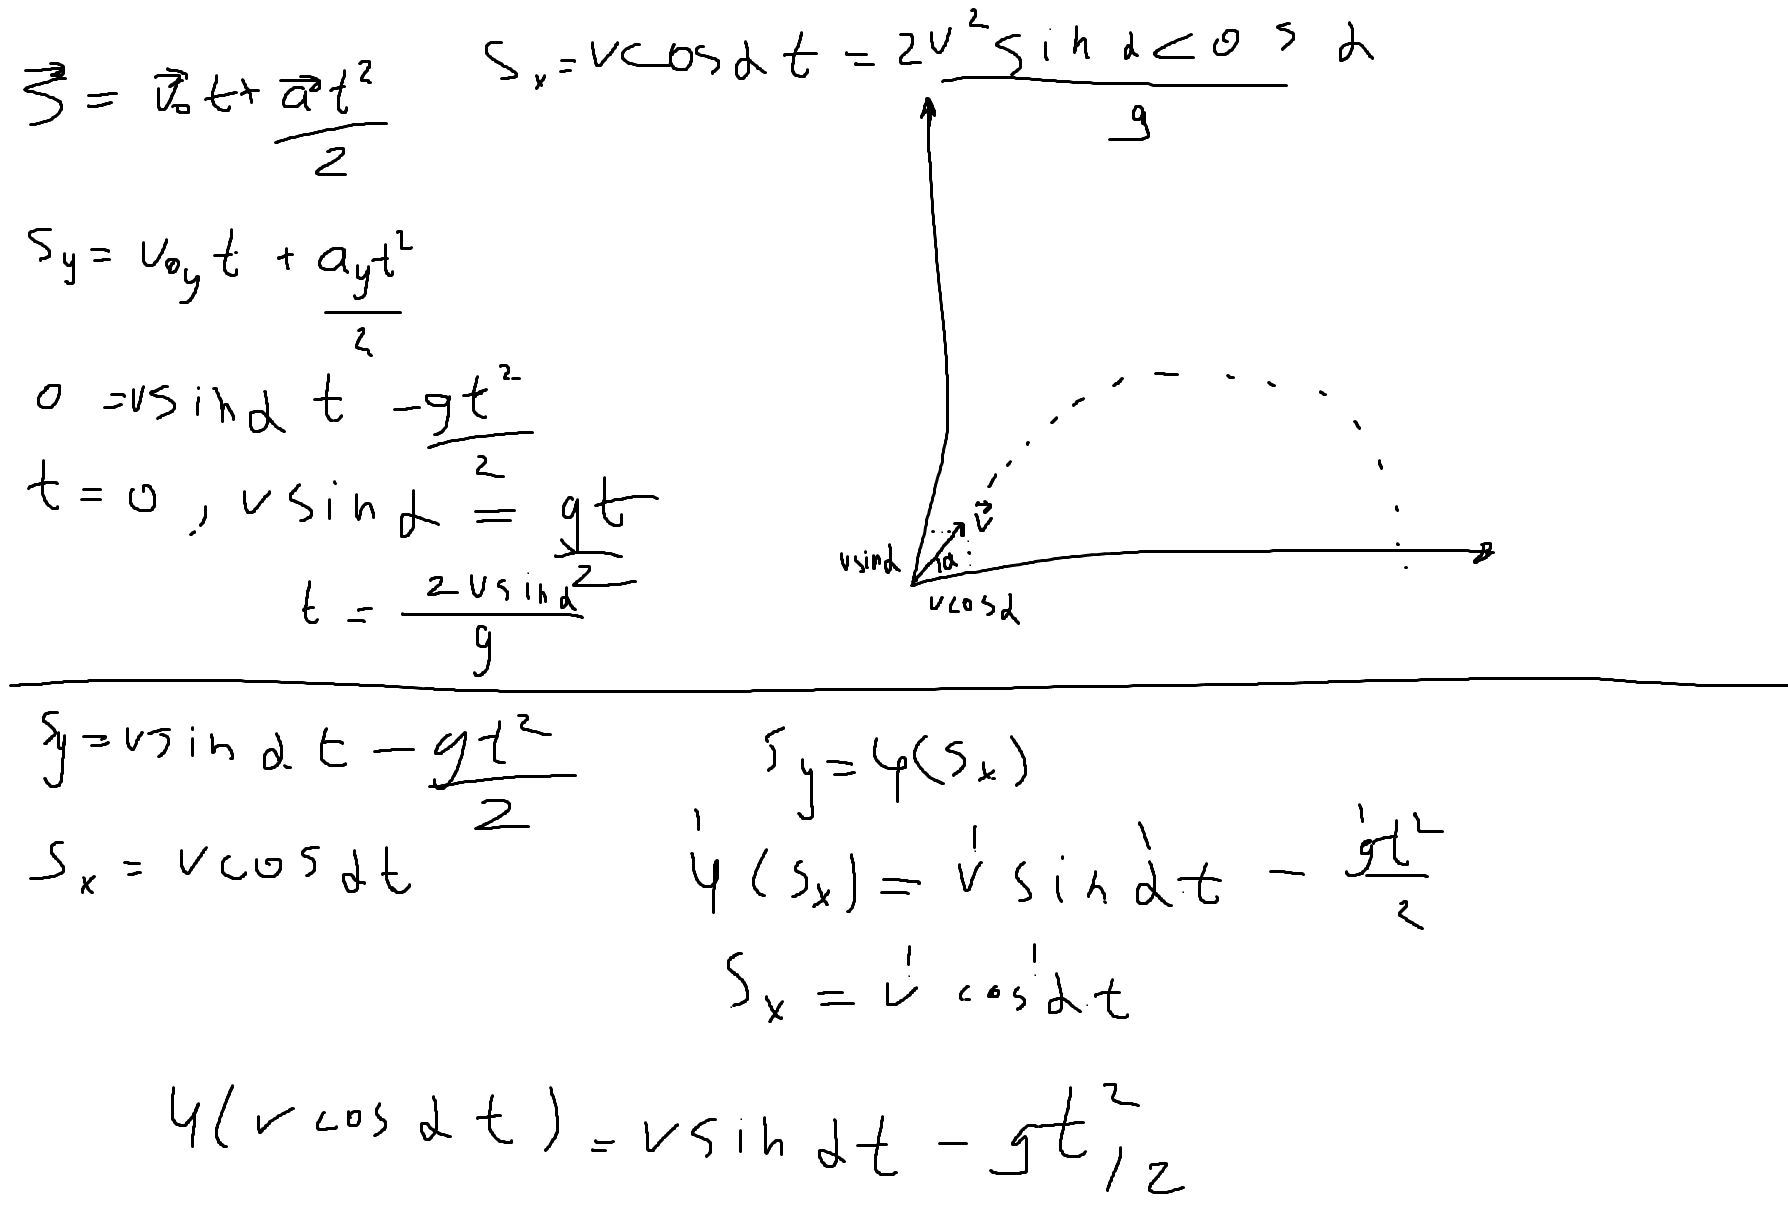 S⃗ = v⃗₀ t + a⃗t²/2
Sₓ = v cosα t = 2v² sinα cosα / g
S_y = v₀_y t + a_y t²/2
0 = v sinα t - gt²/2
t = 0, v sinα = gt/2
t = 2v sinα / g
v⃗
v sinα
α
v cosα
S_y = v sinα t - gt²/2
S_y = φ(Sₓ)
Sₓ = v cosα t
φ(Sₓ) = v sinα t - gt²/2
Sₓ = v cosα t
φ(v cosα t) = v sinα t - gt²/2